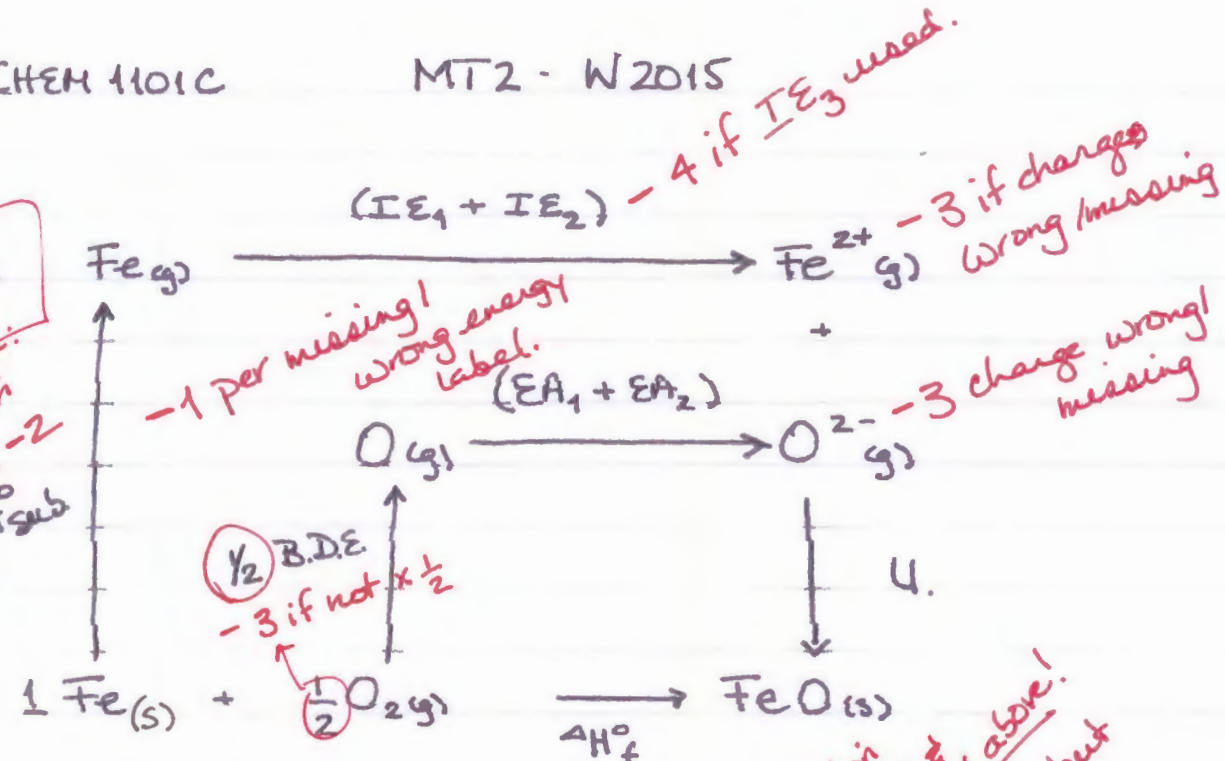 CHEM 1101C MT2 - W2015
- 4 if IE₃ used.
(IE₁ + IE₂)
Fe(g) Fe²⁺(g) - 3 if charges
wrong/missing
- 1 per missing/
wrong energy
label.
+
(EA₁ + EA₂)
O(g) O²⁻(g) - 3 charge wrong/
missing
-2
sub
½ B.D.E.
- 3 if not × ½
U.
1 Fe(s) + ½ O₂(g) FeO(s)
ΔH°f
above!